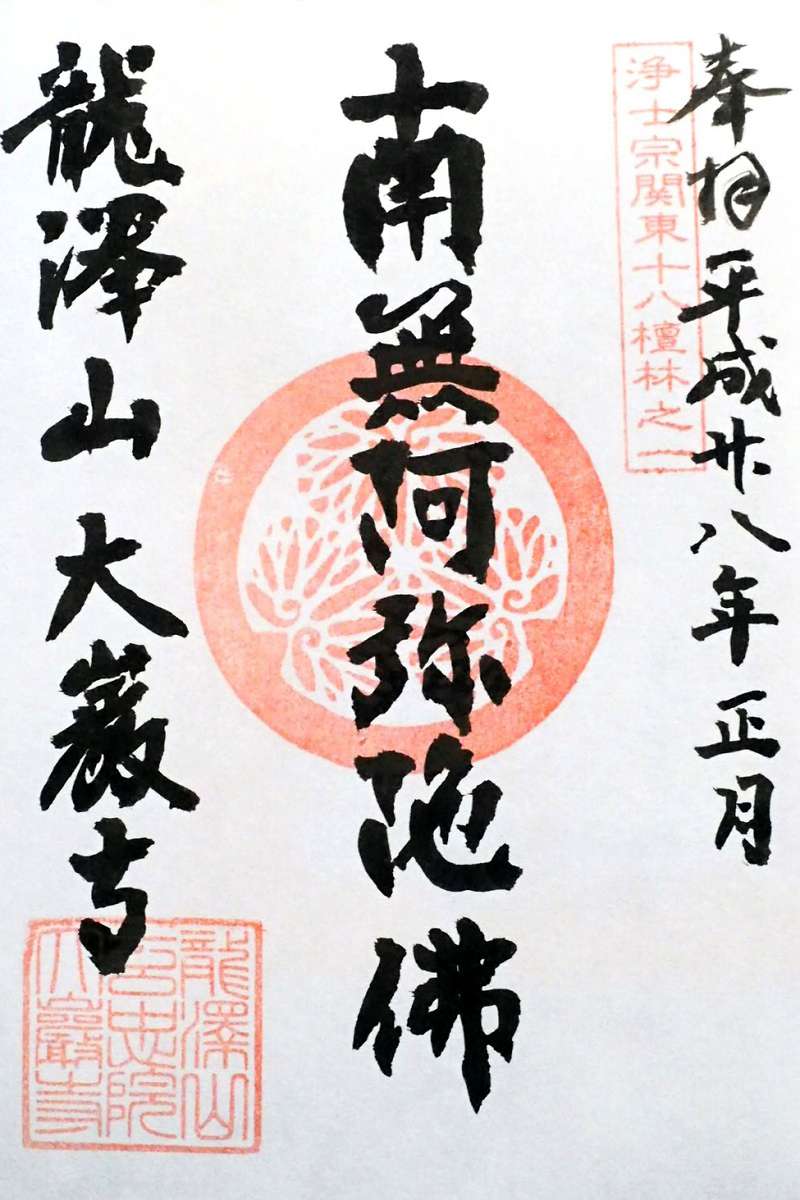 奉拝 平成廿八年 正月
浄土宗關東十八檀林之一
南無阿弥陀佛
龍澤山 大巖寺
龍澤山
玄忠院
大巖寺